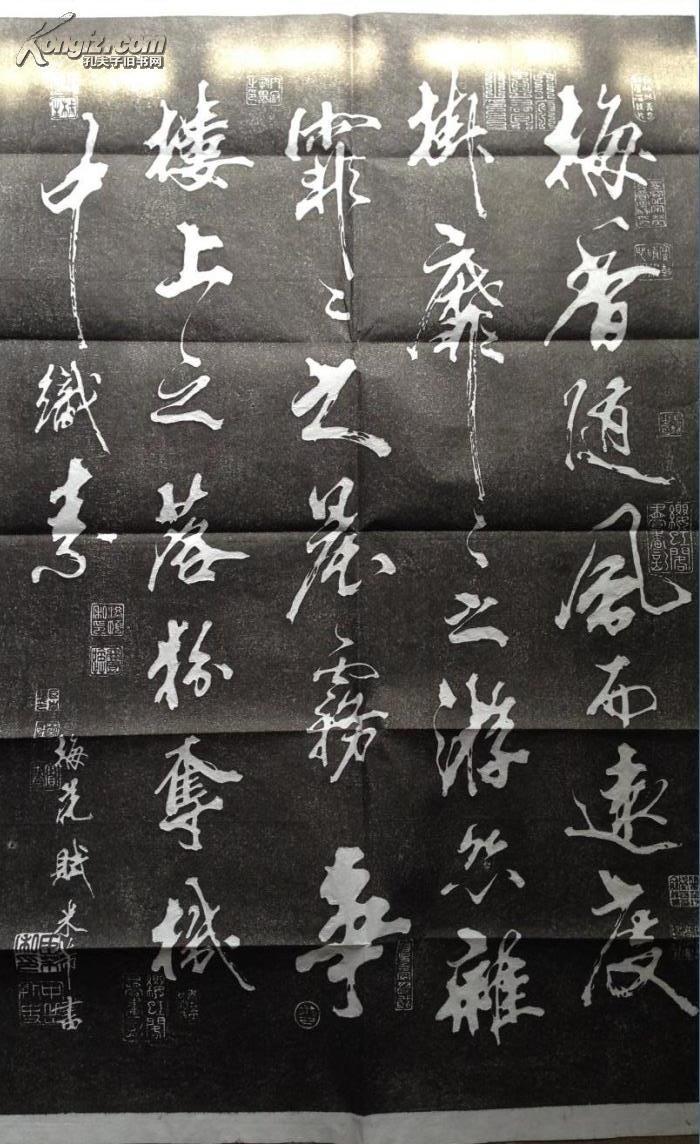 Kongfz.com
孔夫子旧书网
梅香随風而遠度
掛靡〻之游絲雜
霏〻之晨霧爭
樓上之落粉奪機
中織素
梅花賦米芾書